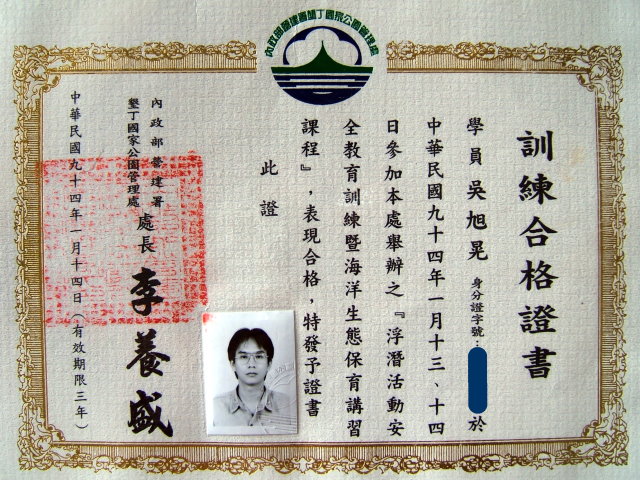 內政部營建署墾丁國家公園管理處
訓練合格證書
學員 吳旭晃 身分證字號： 於
中華民國九十四年一月十三、十四
日參加本處舉辦之『浮潛活動安
全教育訓練暨海洋生態保育講習
課程』，表現合格，特發予證書
此證
內政部營建署
墾丁國家公園管理處
處長 李養盛
中華民國九十四年一月十四日（有效期限三年）